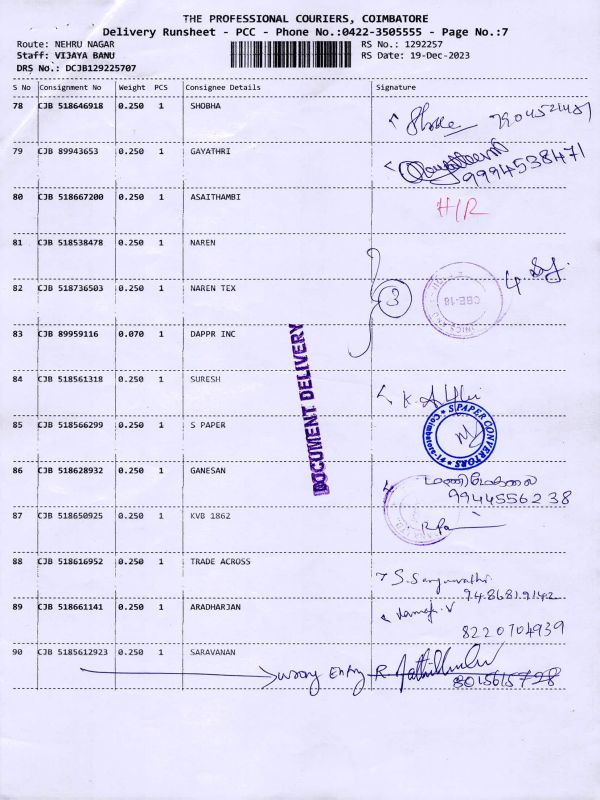 THE PROFESSIONAL COURIERS, COIMBATORE
Delivery Runsheet - PCC - Phone No.:0422-3505555 - Page No.:7
Route: NEHRU NAGAR
Staff: VIJAYA BANU
DRS No.: DCJB129225707
RS No.: 1292257
RS Date: 19-Dec-2023
S No Consignment No Weight PCS Consignee Details Signature
78 CJB 518646918 0.250 1 SHOBHA
79 CJB 89943653 0.250 1 GAYATHRI
9994538471
80 CJB 518667200 0.250 1 ASAITHAMBI H/R
81 CJB 518538478 0.250 1 NAREN
82 CJB 518736503 0.250 1 NAREN TEX 3
CBE-18
83 CJB 89959116 0.070 1 DAPPR INC
DOCUMENT DELIVERY
84 CJB 518561318 0.250 1 SURESH
85 CJB 518566299 0.250 1 S PAPER
S PAPER CONVERTORS
Coimbatore-41
86 CJB 518628932 0.250 1 GANESAN
9944556238
87 CJB 518650925 0.250 1 KVB 1862
88 CJB 518616952 0.250 1 TRADE ACROSS
9486819142
89 CJB 518661141 0.250 1 ARADHARJAN
8220704939
90 CJB 5185612923 0.250 1 SARAVANAN
wrong Entry
8015615728